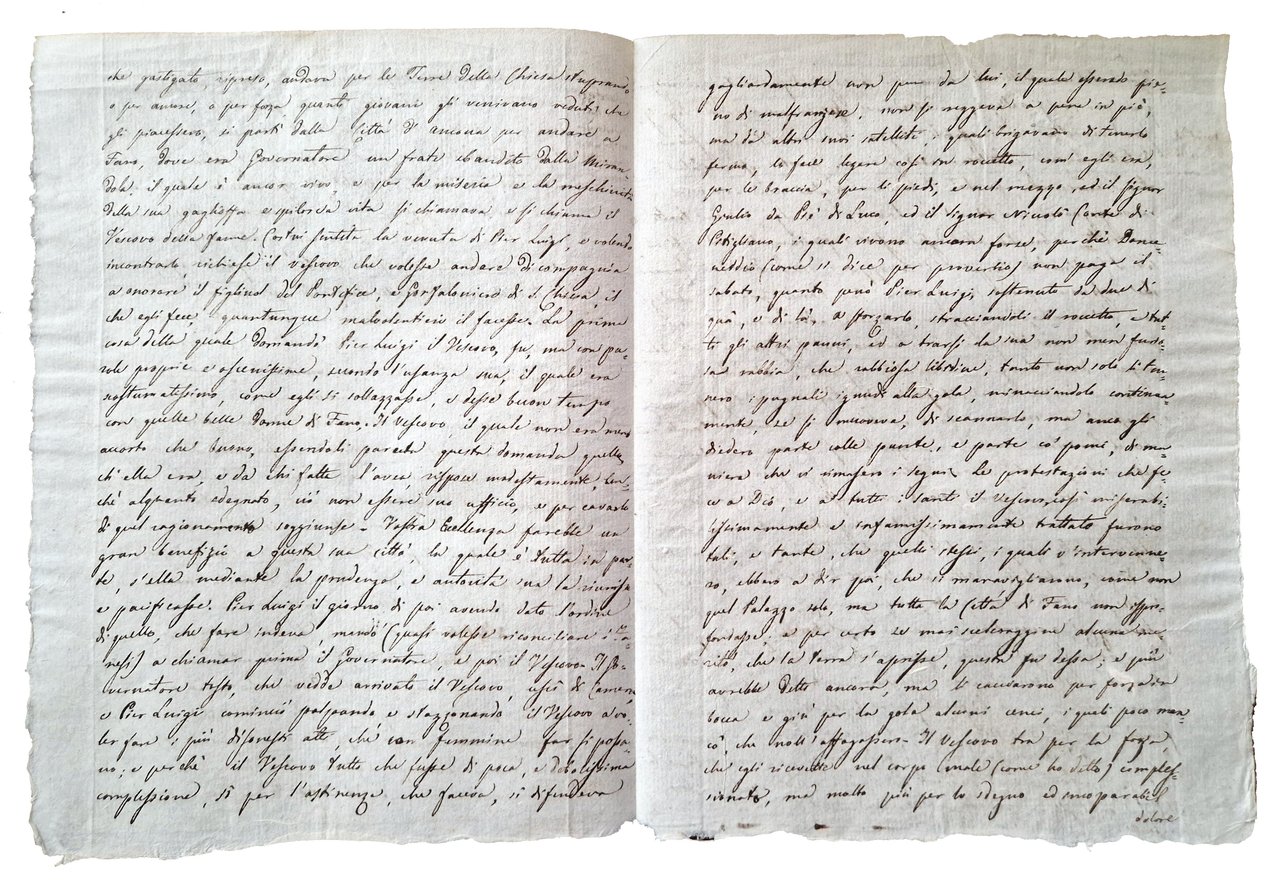 che gastigato, ripreso, andava per le Terre della Chiesa stuprando,
o per amore, o per forza quanti giovani gli venivano veduti che
gli piacessero, si partì dalla Città d'Ancona per andare a
Fano, dove era Governatore un frate sbandito dalla Miran-
dola, il quale è ancor vivo, e per la miseria e la meschinità
della sua gaglioffa e spilorcia vita si chiamava e si chiama il
Vescovo della fame. Costui sentita la venuta di Pier Luigi, e volendo
incontrarlo, richiese il Vescovo che volesse andare di compagnia
a onorare il figliuol del Pontefice, e Gonfaloniero di S. Chiesa, il
che egli fece, quantunque malvolentieri il facesse. La prima
cosa della quale domandò Pier Luigi il Vescovo, fu, ma con pa-
role proprie e oscenissime, secondo l'usanza sua, il quale era
costumatissimo, come egli si sollazzasse, e desse buon tempo
con quelle belle Donne di Fano. Il Vescovo, il quale non era meno
accorto che buono, essendoli paruta questa domanda quella,
ch'ella era, e da chi fatta l'avea, rispose modestamente, ben-
chè alquanto sdegnato, ciò non essere suo uffizio, e per cavarlo
di quel ragionamento soggiunse - Vostra Eccellenza farebbe un
gran benefizio a questa sua città, la quale è tutta in par-
te, s'ella mediante la prudenza, e autorità sua la riunisse
e pacificasse. Pier Luigi il giorno di poi avendo dato l'ordine
di quello, che fare indeva, mandò (quasi volesse riconciliare i Fa-
nesi) a chiamar prima il Governatore, e poi il Vescovo. Il Go-
vernatore tosto, che vedde arrivato il Vescovo, uscì di Camera,
e Pier Luigi cominciò palpando e stazzonando il Vescovo a vo-
ler fare i più disonesti atti, che con femmine far si possa-
no; e perchè il Vescovo tutto che fusse di poca, e debolissima
complessione, sì per l'astinenze, che faceva, si difendeva
gagliardamente non pure da lui, il quale essendo pie-
no di malfranzese, non si reggeva a pena in piè,
ma da altri suoi satelliti, i quali brigavano di tenerlo
fermo, lo fece legare così in roccetto, com'egli era,
per le braccia, per li piedi, e nel mezzo, ed il Signor
Giulio da Piè di Luco, ed il Signor Nicolò Conte di
Pitigliano, i quali vivono ancora forse, perchè Dome-
neddio (come si dice per proverbio) non paga il
sabato, quanto penò Pier Luigi, sostenuto da due di
quà, e di là, a sforzarlo, stracciandoli il roccetto, e tut-
ti gli altri panni, ed a trarsi la sua non men furio-
sa rabbia, che rabbiosa libidine, tanto non solo li ten-
nero i pugnali ignudi alla gola, minacciandolo continua-
mente, se si muoveva, di scannarlo, ma anco gli
diedero parte colle punte, e parte co' pomi, di ma-
niera che vi rimasero i segni. Le protestazioni che fe-
ce a Dio, e a tutti i santi il Vescovo, così miserabi-
lissimamente e infamissimamente trattato furono
tali, e tante, che quelli stessi, i quali v'intervenne-
ro, ebbero a dir poi, che si maravigliarono, come non
quel Palazzo solo, ma tutta la Città di Fano non ispro-
fondasse; e per certo se mai scelleraggine alcuna me-
ritò, che la terra s'aprisse, questa fu dessa; e più
avrebbe detto ancora, ma li cacciarono per forza in
bocca e giù per la gola alcuni cenci, i quali poco man-
cò, che noll'affogassero. Il Vescovo tra per la forza,
che egli ricevette nel corpo (male (come ho detto) comples-
sionato, ma molto più per lo sdegno ed incomparabil
dolore